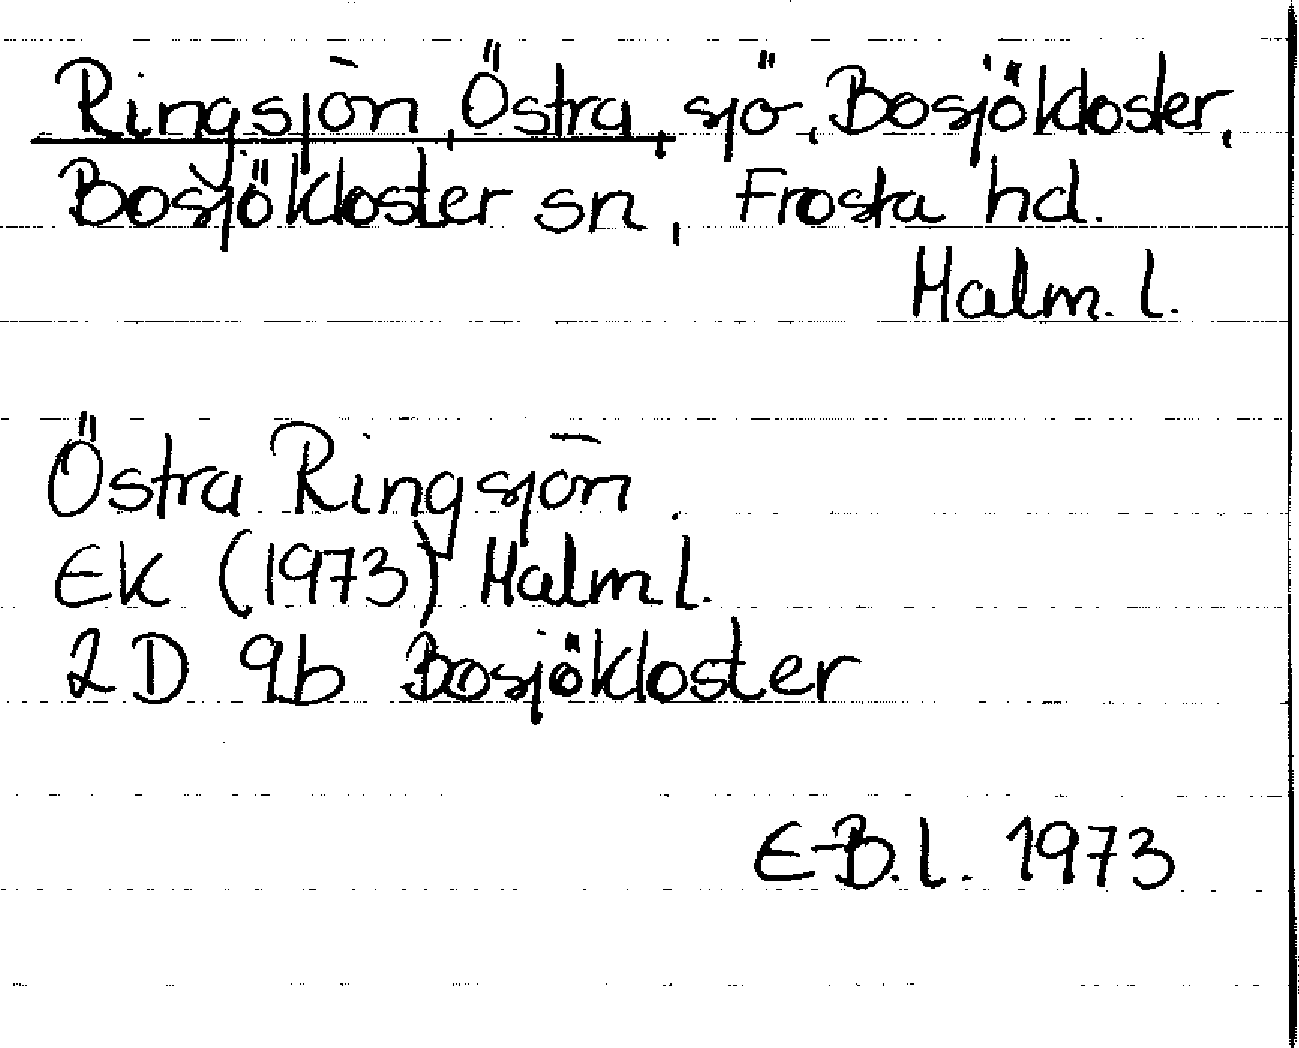 Ringsjön, Östra, sjö, Bosjökloster,
Bosjökloster sn, Frosta hd.
Malm. l.
Östra Ringsjön
EK (1973) Malm l.
2D 9b Bosjökloster
E-B.l. 1973